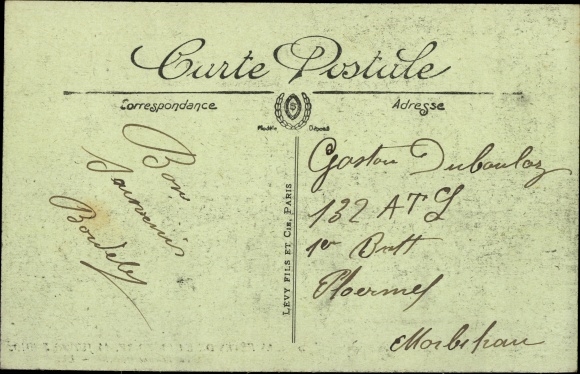 Carte Postale
Correspondance
Adresse
Modèle Déposé
LÉVY FILS ET CIE, PARIS
Bon
souvenir
Gaston Dubouloz
132
1er Batt
Ploermel
Morbihan